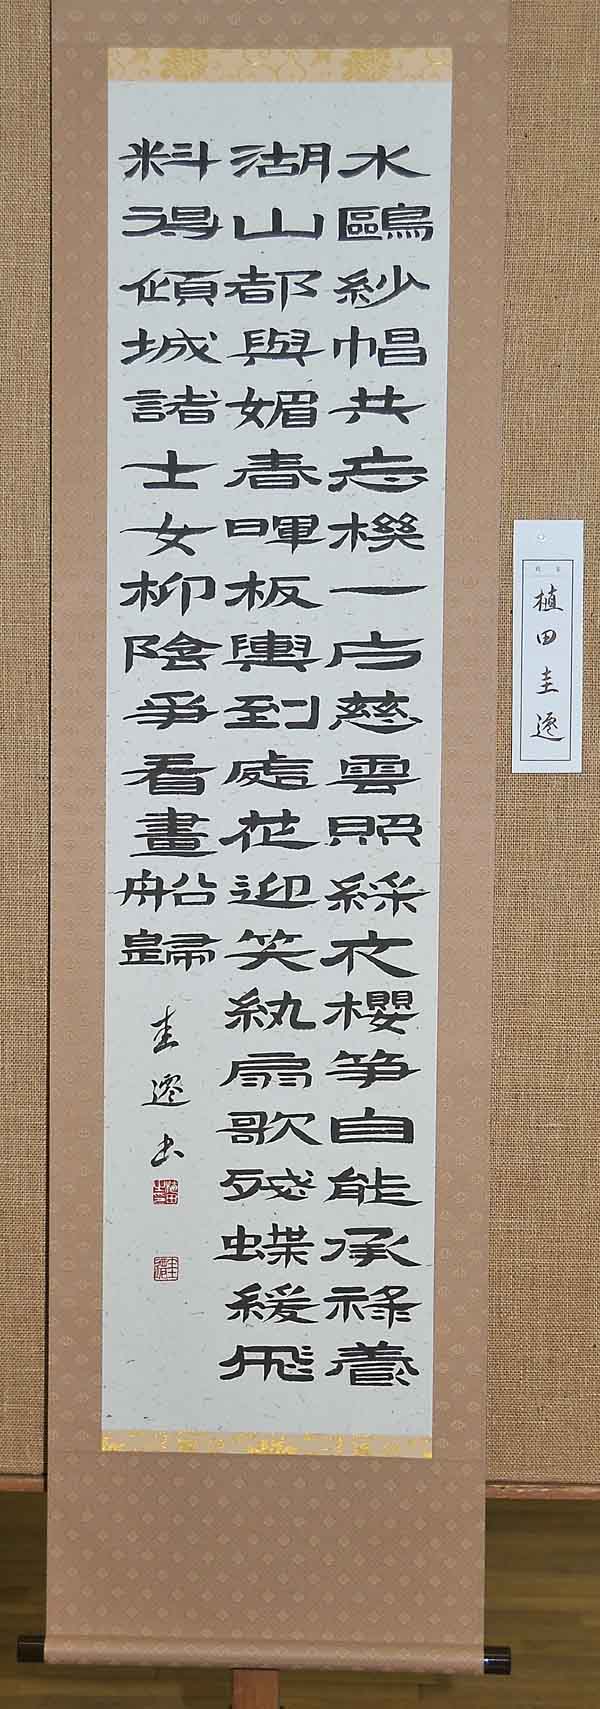 水鷗紗帽共忘機一片慈雲照綵衣櫻筍自能承祿養
湖山都與媚春暉板輿到處花迎笑紈扇歌殘蝶緩飛
料得傾城諸士女柳陰爭看畫船歸
圭遷書
植田圭遷